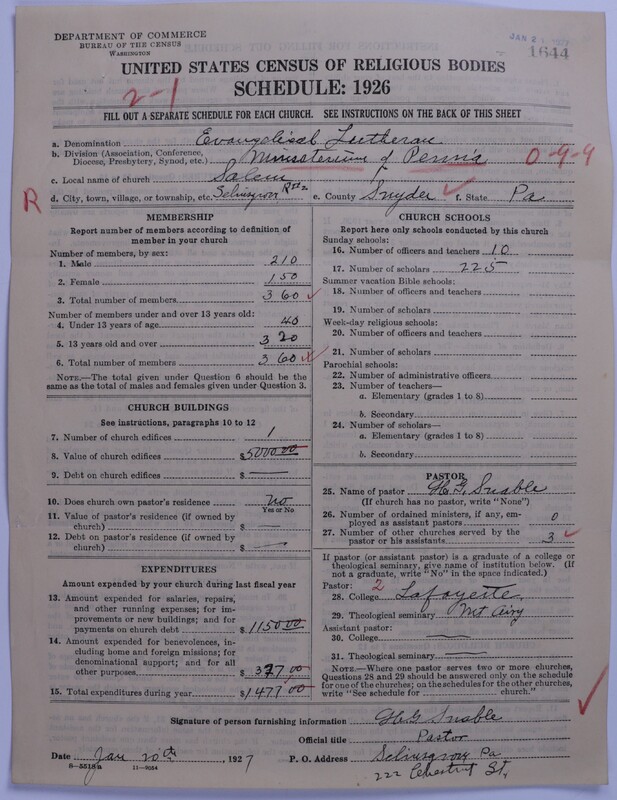 DEPARTMENT OF COMMERCE
BUREAU OF THE CENSUS
WASHINGTON
JAN 2
1644
UNITED STATES CENSUS OF RELIGIOUS BODIES
SCHEDULE: 1926
2-1
FILL OUT A SEPARATE SCHEDULE FOR EACH CHURCH. SEE INSTRUCTIONS ON THE BACK OF THIS SHEET
a. Denomination Evangelical Lutheran
b. Division (Association, Conference, Diocese, Presbytery, Synod, etc.) Ministerium of Penn'a 0-9-9
c. Local name of church Salem
R d. City, town, village, or township, etc. Selinsgrove e. County Snyder f. State Pa
MEMBERSHIP
Report number of members according to definition of
member in your church
Number of members, by sex:
1. Male 210
2. Female 150
3. Total number of members 360
Number of members under and over 13 years old:
4. Under 13 years of age 40
5. 13 years old and over 320
6. Total number of members 360
NOTE.—The total given under Question 6 should be
same as the total of males and females given under Question 3.
CHURCH BUILDINGS
See instructions, paragraphs 10 to 12
7. Number of church edifices 1
8. Value of church edifices $5000.00
9. Debt on church edifices $
10. Does church own pastor's residence No
Yes or No
11. Value of pastor's residence (if owned by
church) $
12. Debt on pastor's residence (if owned by
church) $
EXPENDITURES
Amount expended by your church during last fiscal year
13. Amount expended for salaries, repairs,
and other running expenses; for im-
provements or new buildings; and for
payments on church debt $1150.00
14. Amount expended for benevolences, in-
cluding home and foreign missions; for
denominational support; and for all
other purposes $ 327.00
15. Total expenditures during year $1477.00
CHURCH SCHOOLS
Report here only schools conducted by this church
Sunday schools:
16. Number of officers and teachers 10
17. Number of scholars 225
Summer vacation Bible schools:
18. Number of officers and teachers
19. Number of scholars
Week-day religious schools:
20. Number of officers and teachers
21. Number of scholars
Parochial schools:
22. Number of administrative officers
23. Number of teachers—
a. Elementary (grades 1 to 8)
b. Secondary
24. Number of scholars—
a. Elementary (grades 1 to 8)
b. Secondary
PASTOR
25. Name of pastor H. G. Snable
(If church has no pastor, write "None")
26. Number of ordained ministers, if any, em-
ployed as assistant pastors 0
27. Number of other churches served by the
pastor or his assistants 3
If pastor (or assistant pastor) is a graduate of a college or
theological seminary, give name of institution below. (If
not a graduate, write "No" in the space indicated.)
Pastor: 2
28. College Lafayette
29. Theological seminary Mt Airy
Assistant pastor:
30. College
31. Theological seminary
NOTE.—Where one pastor serves two or more churches,
Questions 28 and 29 should be answered only on the schedule
for one of the churches; on the schedules for the other churches,
write "See schedule for church."
Signature of person furnishing information H G Snable
Official title Pastor
Date Jan 20th, 1927 P. O. Address Selinsgrove Pa
8-5518a 11-9054 222 Chestnut St.